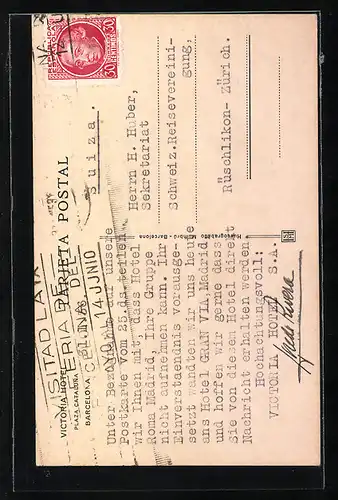 VICTORIA HOTEL
PLAZA CATALUÑA
BARCELONA
TARJETA POSTAL
VISITAD LA IX
FERIA DE
DEL
14 JUNIO
Unter Bezugnahme auf unsere
Postkarte vom 25.ds. teilen
wir Ihnen mit, dass Hotel
Roma Madrid, Ihre Gruppe
nicht aufnehmen kann. Ihr
Einverstaendnis vorausge-
setzt wandten wir uns heute
ans Hotel GRAN VIA, Madrid
und hoffen wir gerne dass
Sie von diesem Hotel direkt
Nachricht erhalten werden.
Hochachtungsvoll:
VICTORIA HOTEL S.A.
Huecograbado Mumbrú - Barcelona
30
CENTIMOS
30
Herrn H. Huber,
Sekretariat
Schweiz.Reisevereini-
gung,
Rüschlikon- Zürich.
Suiza.